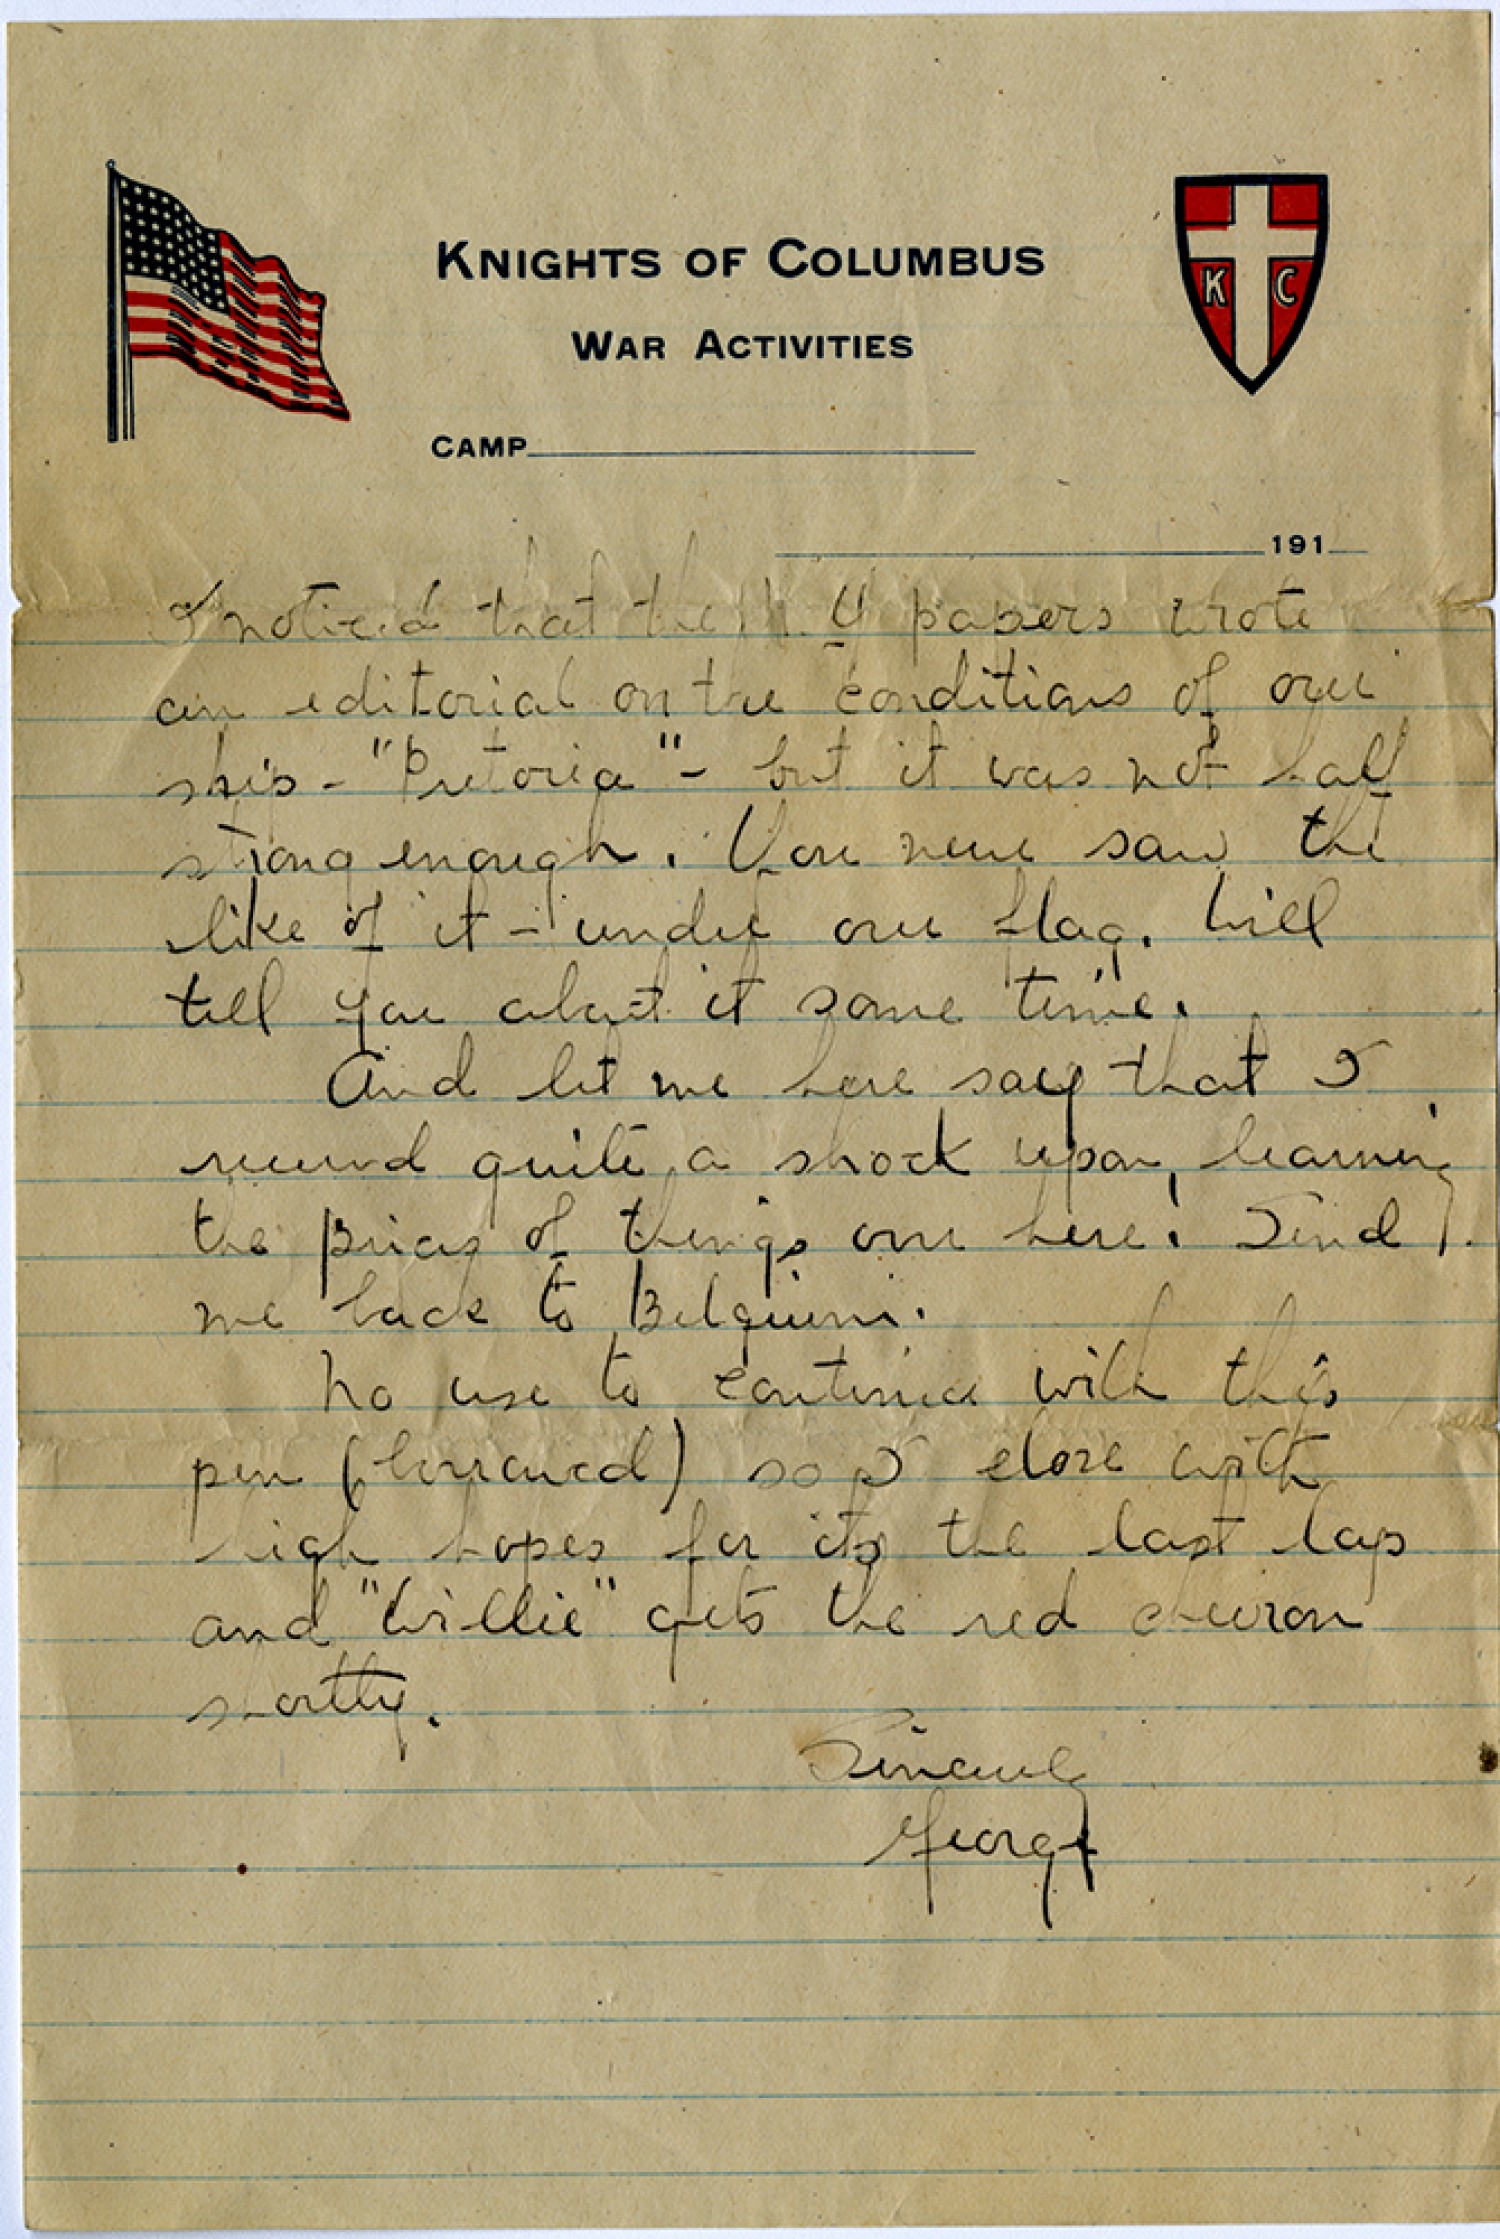 KNIGHTS OF COLUMBUS
WAR ACTIVITIES
K C
CAMP
191
I noticed that the N.Y papers wrote
an editorial on the conditions of our
ship - "Pretoria" - but it was not half
strong enough. You never saw the
like of it - under our flag. Will
tell you about it some time.
And let me here say that I
received quite a shock upon learning
the prices of things over here! Send
me back to Belgium.
No use to continue with this
pen (borrowed) so I close with
high hopes for its the last lap
and "Willie" gets the red chevron
shortly.
Sincerely
George